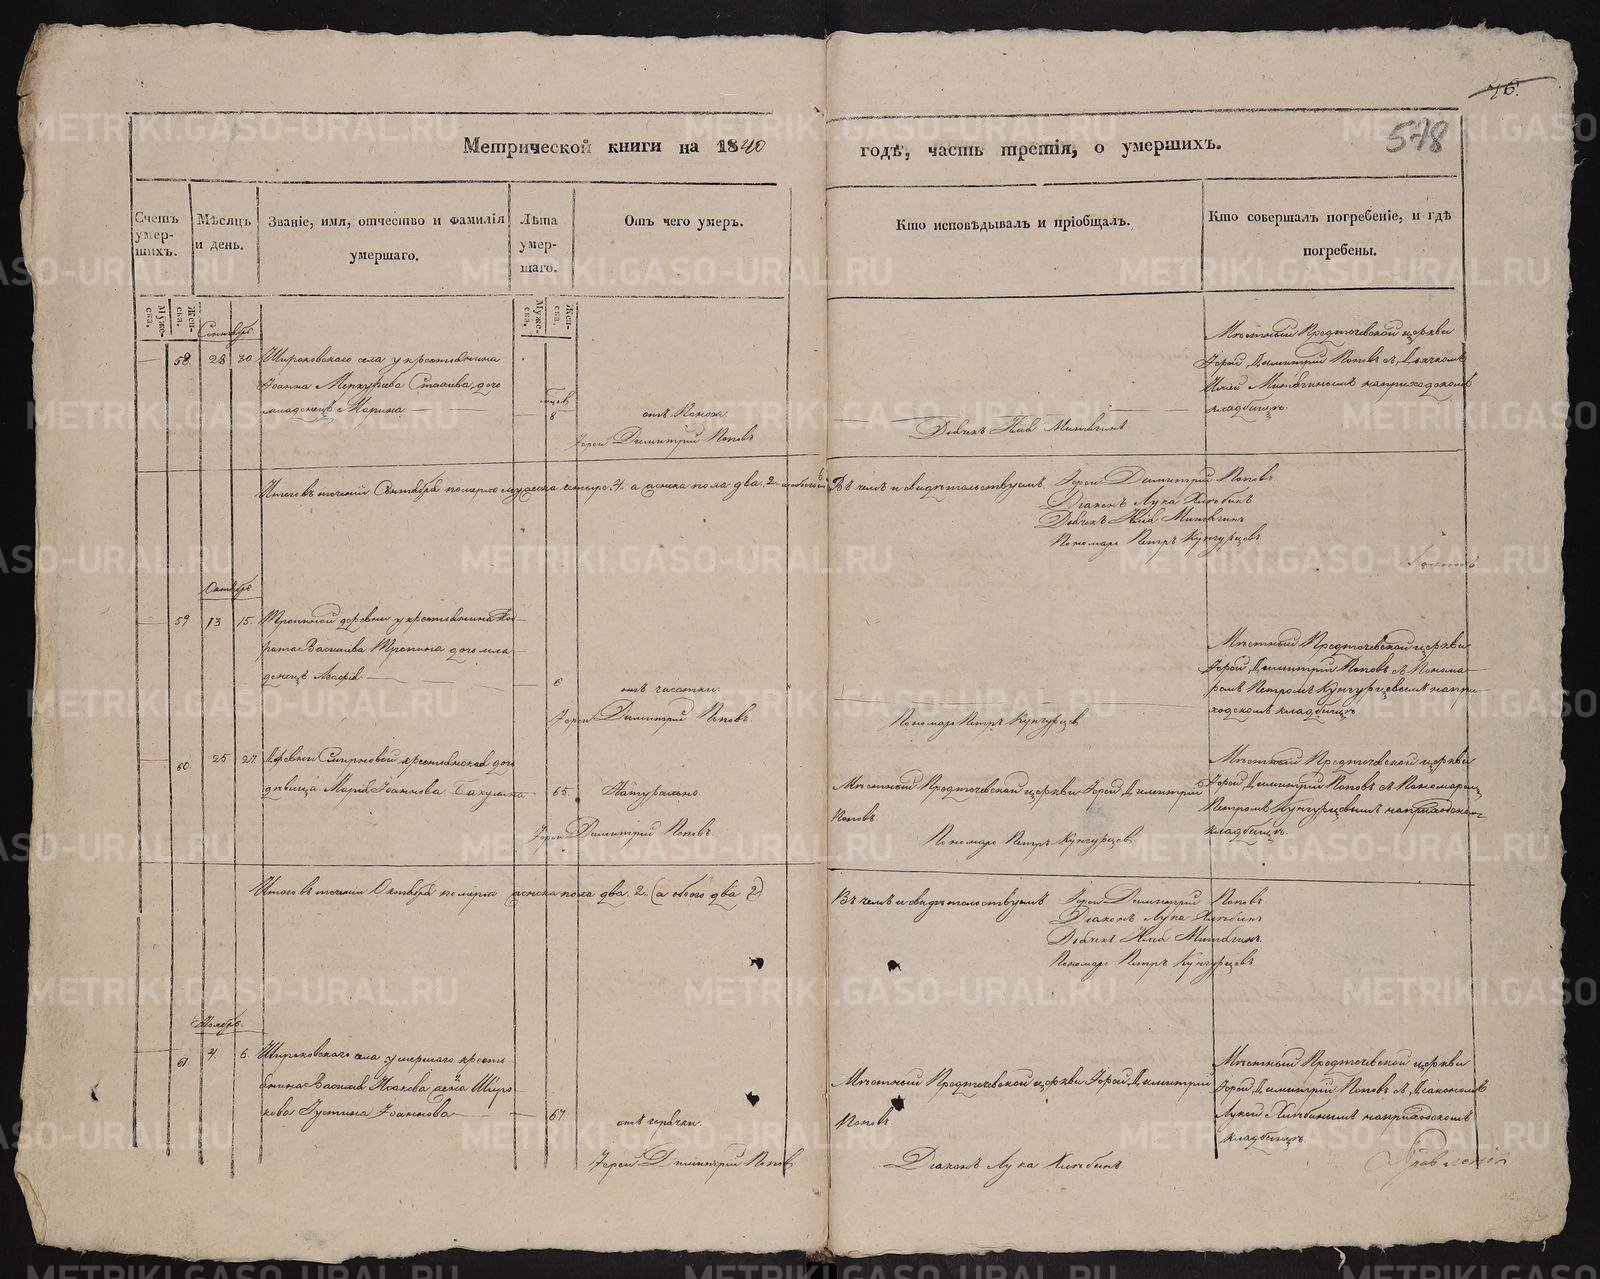 76.
578
Метрической книги на 1840
годѣ, часть третія, о умершихъ.
Счетъ умер-шихъ.
Мѣсяцъ и день.
Званіе, имя, отчество и фамилія умершаго.
Лѣта умер-шаго.
Отъ чего умеръ.
Кто исповѣдывалъ и пріобщалъ.
Кто совершалъ погребеніе, и гдѣ погребены.
Муже-ска.
Жен-ска.
Муже-ска.
Жен-ска.
Сентябрь
58 28 30 Широковскаго села у крестьянина
Іоанна дочь
младенецъ Марина
8
отъ поноса.
Іерей Димитрій Поповъ
Дьячекъ
Мѣстный Предтечевской церкви
Іерей Димитрій Поповъ съ Дьячкомъ
на приходскомъ
кладбищѣ.
Итого въ теченіи Сентября померло мужеска четыре 4. а женска пола два 2.
Въ чемъ и свидѣтельствуемъ Іерей Димитрій Поповъ
Діаконъ Лука Хлѣбинъ
Дьячекъ
Пономарь Петръ Кунгурцевъ
Октябрь
59 13 15 деревни у крестьянина
Василіева дочь мла-
денецъ
6
отъ чахотки.
Іерей Димитрій Поповъ.
Пономарь Петръ Кунгурцев
Мѣстный Предтечевской церкви
Іерей Димитрій Поповъ съ Понома-
ремъ Петромъ Кунгурцевымъ на при-
ходскомъ кладбищѣ
60. 25 27 Деревни Смирновой крестьянская дочь
дѣвица Марія Іоаннова
65.
Натурально.
Іерей Димитрій Поповъ.
Мѣстный Предтечевской церкви Іерей Димитрій
Поповъ.
Пономарь Петръ Кунгурцев
Мѣстный Предтечевской церкви
Іерей Димитрій Поповъ съ Пономаремъ
Петромъ Кунгурцевымъ на приходскомъ
кладбищѣ.
Итого въ теченіи Октября померло женска пола два 2 (а обоего два 2)
Въ чемъ и свидѣтельствуемъ Іерей Димитрій Поповъ
Діаконъ Лука Хлѣбинъ
Дьячекъ
Пономарь Петръ Кунгурцевъ
Ноябрь
61 4. 6. Широковскаго села умершаго кресть-
янина Василія жена Широ-
кова Іустина Іоаннова
67
отъ горячки.
Іерей Димитрій Поповъ
Мѣстный Предтечевской церкви Іерей Димитрій
Поповъ
Діаконъ Лука Хлѣбинъ
Мѣстный Предтечевской церкви
Іерей Димитрій Поповъ съ Діакономъ
Лукой Хлѣбинымъ на приходскомъ
кладбищѣ
METRIKI.GASO-URAL.RU